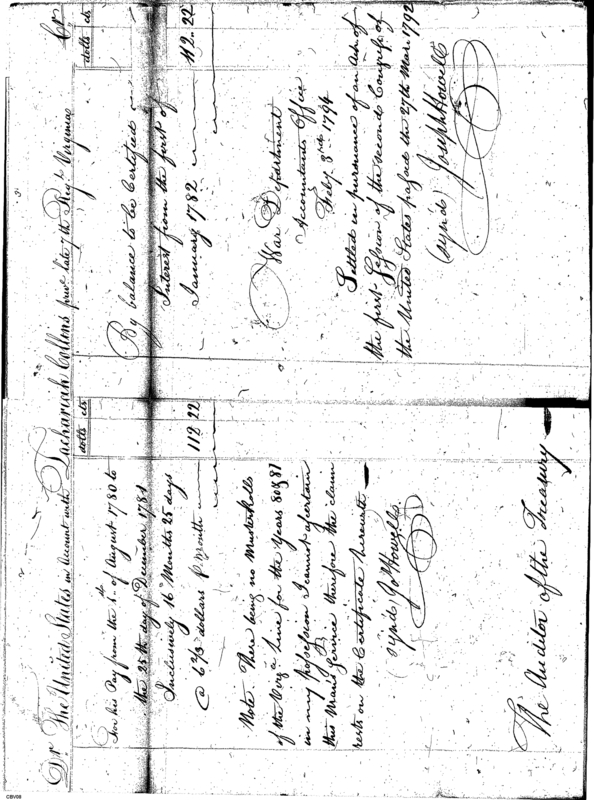 Dr. The United States in account with Zachariah Collins priv. late 7th Regt. Virginia Cr
dolls cts
For his Pay from the 1st. of August 1780 to
the 25th day of December 1781
Inclusively 16 Months 25 days
@ 6 2/3 dollars p month 112 22
Note. There being no Musterrolls
of the Virga. Line for the Years 80 & 81
in my possession I cannot ascertain
this Mans Service therefore the claim
rests on the Certificate herewith
(synd) Jos Howell
The Auditor of the Treasury
dolls cts
By balance to be Certified
Interest from the first of
January 1782 112. 22
War Department
Accountants Office
Feby. 3rd 1794
Settled in pursuance of an Act of
the first Session of the second Congress of
the United States passed the 27th Mar. 1792
(synd) Joseph Howell
CBV09